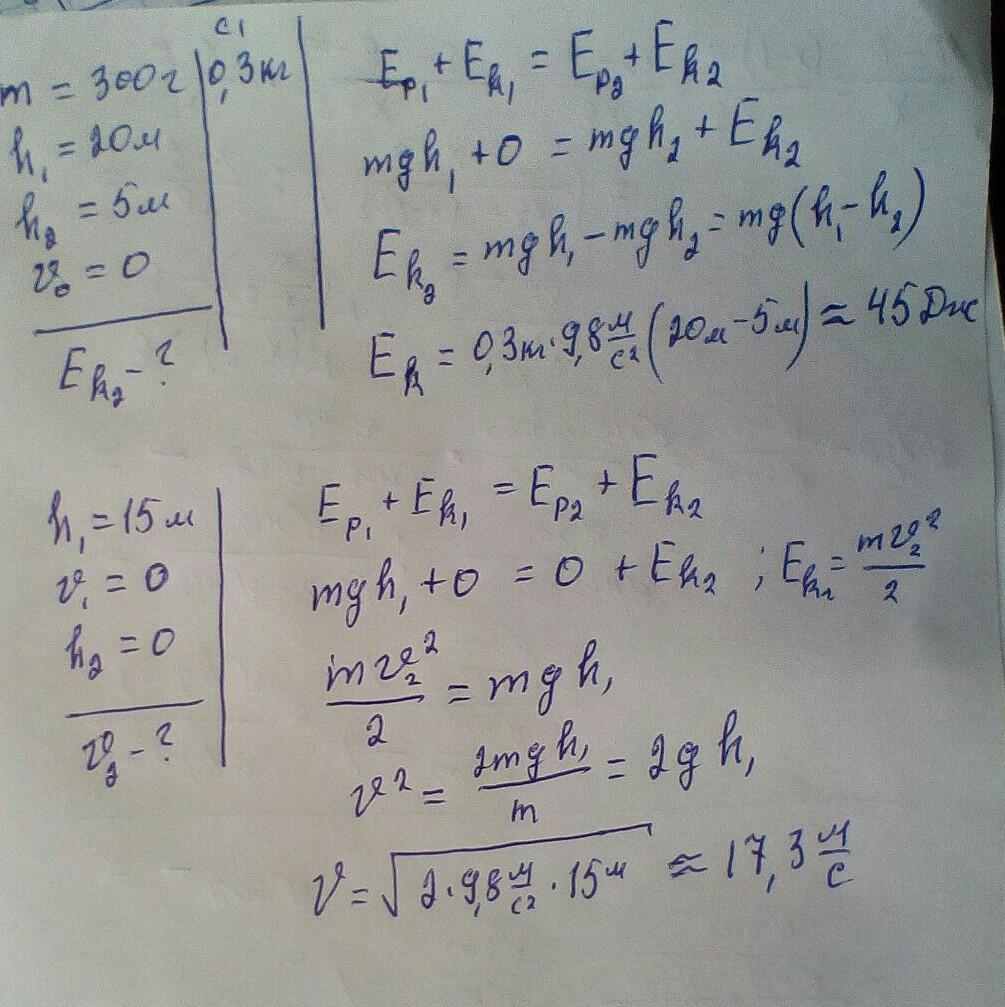 СИ
m = 300г | 0,3кг
h₁ = 20м
h₂ = 5м
v₀ = 0
Eₖ₂ - ?
Eₚ₁ + Eₖ₁ = Eₚ₂ + Eₖ₂
mgh₁ + 0 = mgh₂ + Eₖ₂
Eₖ₂ = mgh₁ - mgh₂ = mg(h₁ - h₂)
Eₖ = 0,3кг · 9,8 м/с² (20м - 5м) ≈ 45 Дж
h₁ = 15 м
v₁ = 0
h₂ = 0
v₂ - ?
Eₚ₁ + Eₖ₁ = Eₚ₂ + Eₖ₂
mgh₁ + 0 = 0 + Eₖ₂ ; Eₖ₂ = mv₂²/2
mv₂²/2 = mgh₁
v² = 2mgh₁/m = 2gh₁
v = √(2 · 9,8 м/с² · 15м) ≈ 17,3 м/с